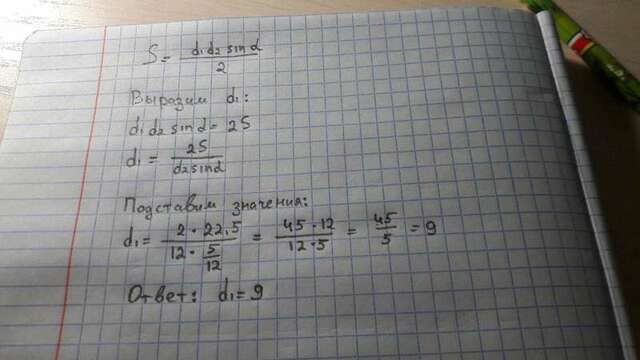 S = d₁d₂ sin α / 2
Выразим d₁:
d₁d₂ sin α = 2S
d₁ = 2S / d₂ sin α
Подставим значения:
d₁ = 2 · 22,5 / 12 · 5/12 = 45 · 12 / 12 · 5 = 45 / 5 = 9
Ответ: d₁ = 9